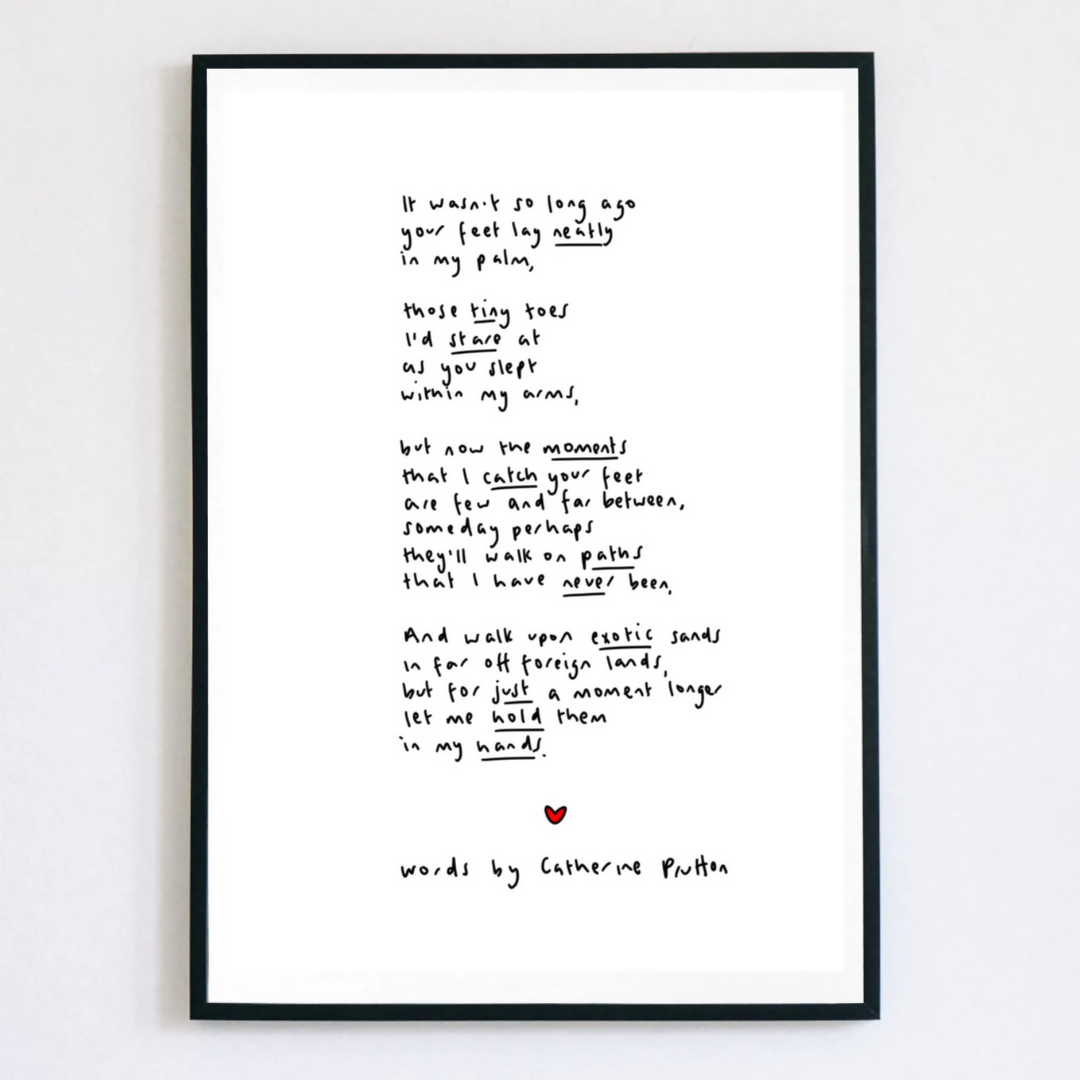 It wasn't so long ago
your feet lay neatly
in my palm,
those tiny toes
I'd stare at
as you slept
within my arms,
but now the moments
that I catch your feet
are few and far between,
someday perhaps
they'll walk on paths
that I have never been,
And walk upon exotic sands
in far off foreign lands,
but for just a moment longer
let me hold them
in my hands.
words by Catherine Prutton